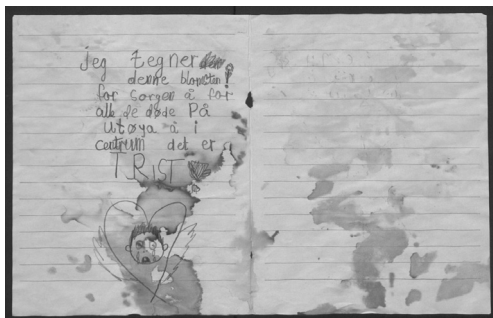 jeg tegner
denne blomsten
for sorgen å for
alle de døde På
Utøya å i
centrum det er
TRIST